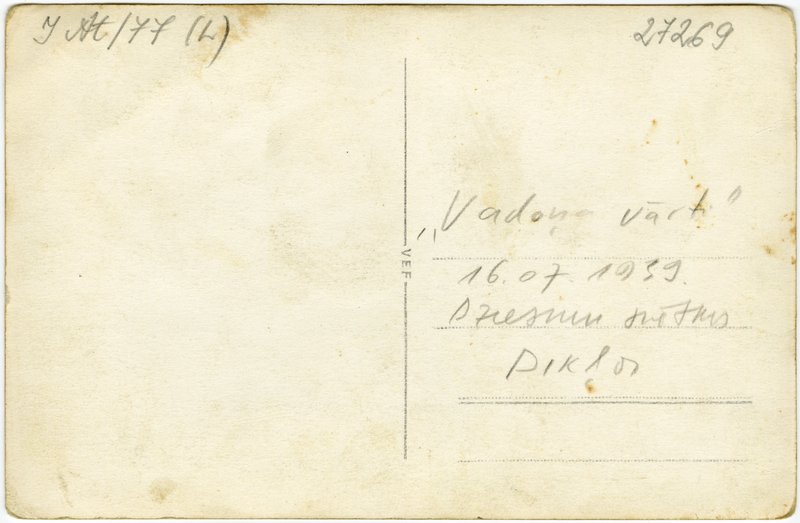 J At/77 (L)
27269
„Vadoņa vārti"
VEF
16.07.1939.
Dziesmu svētkos
Dikļos